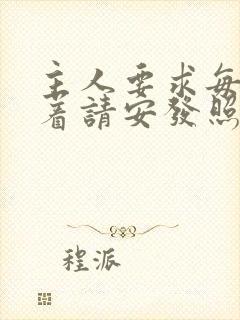 主人要求每
着請安發照
程派